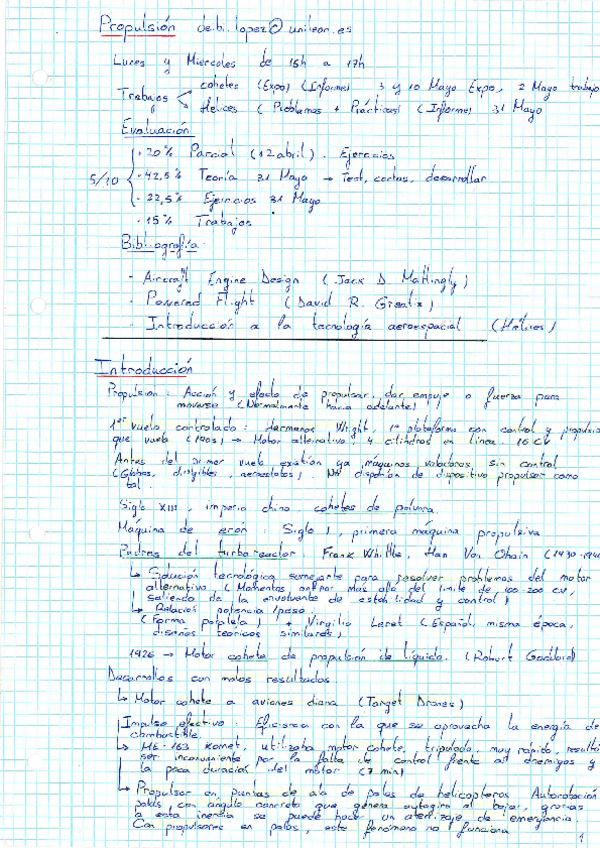 Propulsión de.bi.lopez@unileon.es
Lunes y Miercoles de 15h a 17h
Trabajos cohetes (Expo) (Informe) 3 y 10 Mayo Expo, 2 Mayo trabajo
Hélices (Problemas + Prácticas) (Informe) 31 Mayo
Evaluación
5/10
· 20% Parcial (12 abril). Ejercicios
· 42,5% Teoría 31 Mayo → Test, cortas, desarrollar
· 22,5% Ejercicios 31 Mayo
· 15% Trabajos
Bibliografía
- Aircraft Engine Design (Jack D. Mattingly)
- Powered Flight (David R. Greatix)
- Introducción a la tecnología aeroespacial (Hélices)
Introducción
Propulsión: Acción y efecto de propulsar, dar empuje o fuerza para
moverse (Normalmente hacia adelante)
1er vuelo controlado: Hermanos Wright, 1ª plataforma con control y propulsión
que vuela (1903) → Motor alternativo, 4 cilindros en línea 16 CV
Antes del primer vuelo existían ya máquinas voladoras sin control
(Globos, dirigibles, aerostatos). No disponían de dispositivo propulsor como
tal.
Siglo XIII, imperio chino cohetes de polvora
Máquina de erón: Siglo I, primera máquina propulsiva
Padres del turboreactor. Frank Whittle, Han Von Ohain (1930-194
↳ Solución tecnológica semejante para resolver problemas del motor
alternativo (Momentos, no ir más alla del limite de 100-200 CV,
saliendo de la envolvente de estabilidad y control)
↳ Relación potencia/peso
(Forma paralela) + Virgilio Leret (Español, misma época,
diseños teóricos similares)
1926 → Motor cohete de propulsión de líquido. (Robert Goddard)
Desarrollos con malos resultados
↳ Motor cohete a aviones diana (Target Drones)
Impulso efectivo: Eficiencia con la que se aprovecha la energía de
combustible.
↳ M6-163 Komet, utilizaba motor cohete, tripulado, muy rápido, resultó
ser inconveniente por la falta de control frente a enemigos y
la poca duración del motor (7 min)
↳ Propulsor en puntas de ala de palas de helicopteros Autorotación
palas, con angulo concreto que genera autogiro al bajar, gracias
a esta inercia se puede hacer un aterrizaje de emergencia.
Con propulsores en palas, este fenómeno no funciona
1